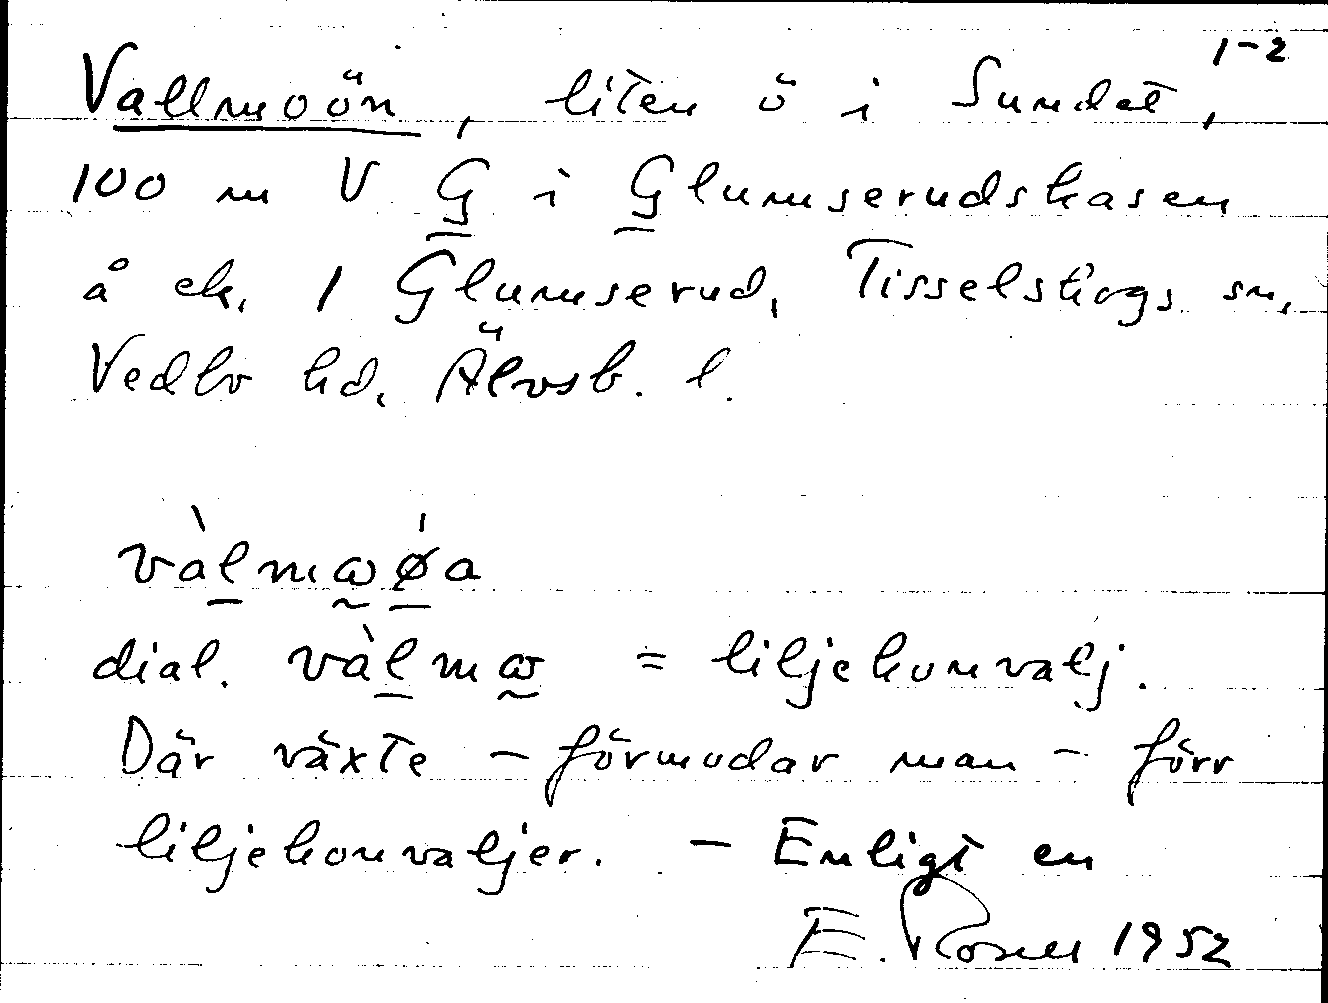 1-2
Vallmoön, liten ö i Sundet,
100 m V G i Glumserudskasen
å ek. 1 Glumserud, Tisselskogs sn,
Vedbo hd. Älvsb. l.
vàlmωǿa
dial. vàlmω = liljekonvalj.
Där växte – förmodar man – förr
liljekonvaljer. – Enligt en
E. Rosell 1952